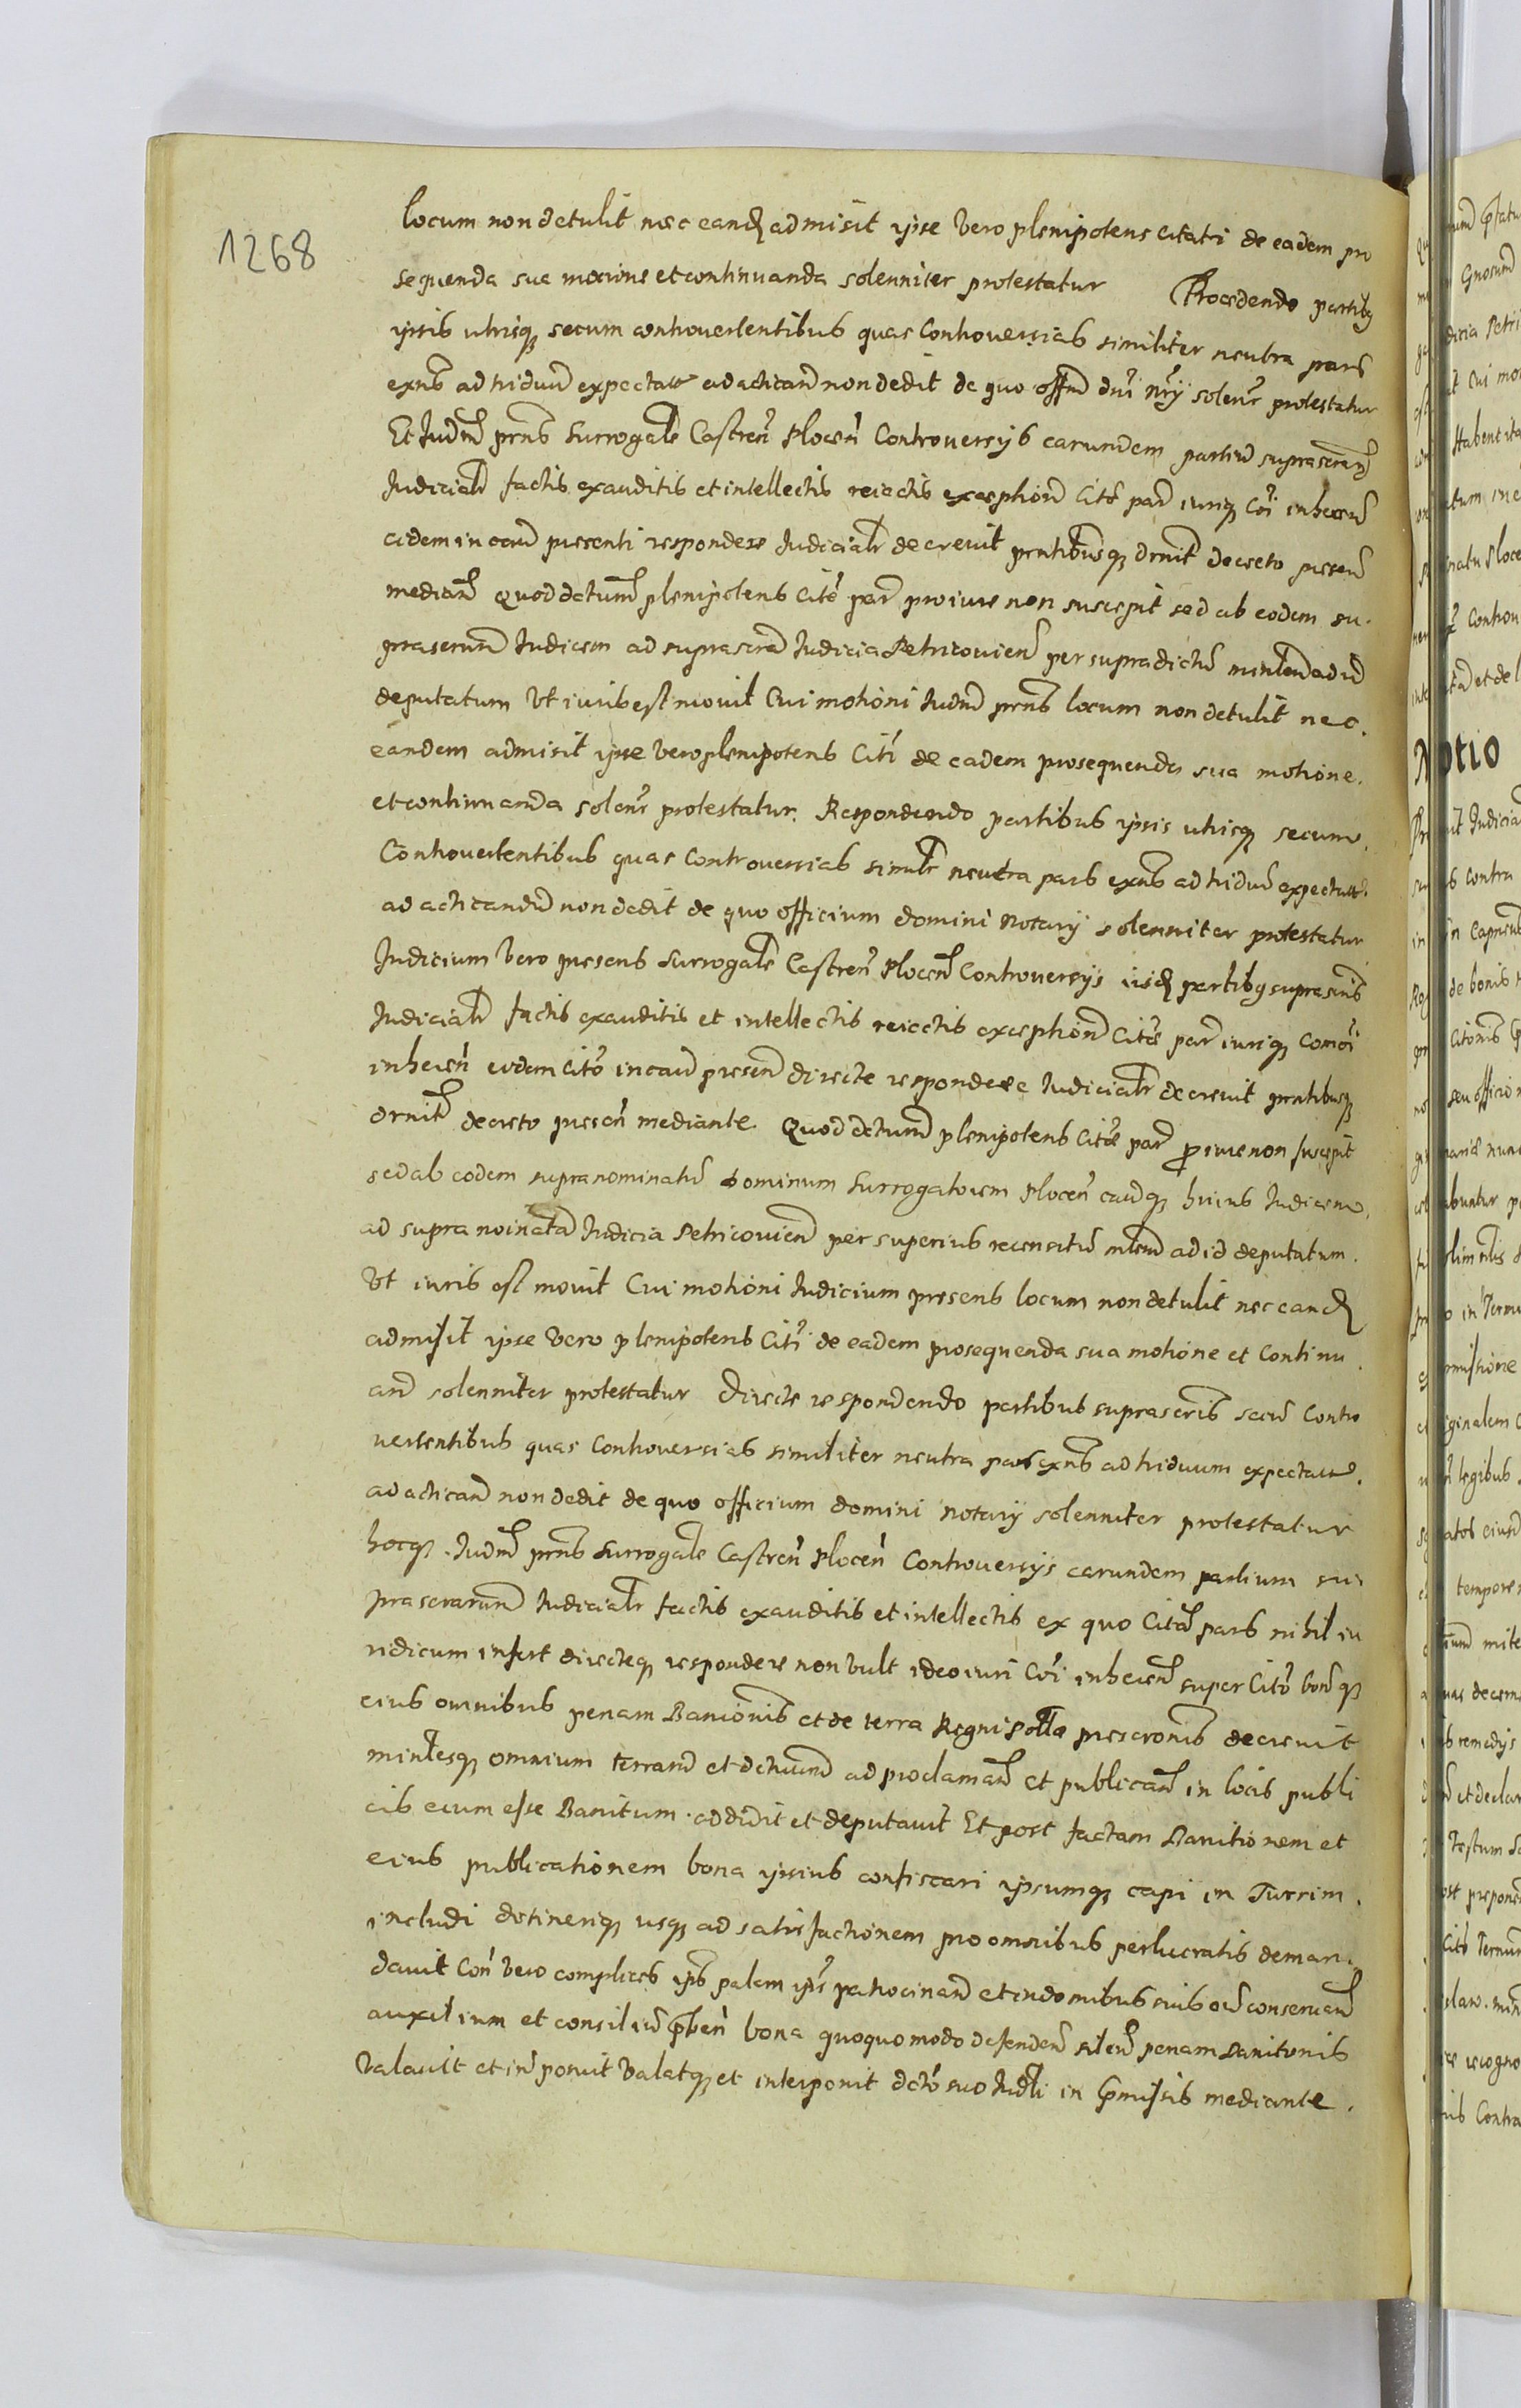 1268
locum non detulit nec eand admisit ipse vero plenipotens citati de eadem pro
sequenda sua mocione et continuanda solenniter protestatur Procedendo partibq
ipsis utrisq secum controvertentibus quas Controversias similiter neutra pars
exnś ad triduū expectatt ad acticand non dedit de quo offm dni Nrij solenr protestatur
Et Judm prns Surrogate Castren Plocen Controversys earundem partiū suprascr
Judicialr factis exauditis et intellectis reiectis exceptiom Cito par iuriq Coi inheren
eidem in cau presenti respondere Judicialr decrevit prntibusq drnit decreto presen
median Quod detum plenipotens Cite par pro iure non suscepit sed ab eodem su
prascrm Judicem ad suprascra Judicia Petricovien per supradictu mintem ad id
deputatum Ut iuris est movit Cui motioni Judm prns locum non detulit nec
eandem admisit ipse vero plenipotens Citi de eadem prosequenda sua motione
et continuanda solenr protestatur. Respondendo partibus ipsis utrisq secum
Controvertentibus quas Controversias similr neutra pars exns ad triduū expectatt
ad acticandū non dedit de quo officium domini Notarij solenniter protestatur
Judicium vero presens Surrogate Castren Plocen Controversijs iisd partibq suprascris
Judicialr factis exauditis et intellectis reiectis exception Cite par iuriq Comoi
inheren eidem Cito in cau presen directe respondere Judicialr decrevit prntibusq
drnit decreto presen mediante Quod detum plenipotens Cite par pro iure non suscepit
sed ab eodem supra nominatū dominum Surrogatorem Plocen cauq huius Judicem
ad supra noinata Judicia Petricovien per superius recensitū mtem ad id deputatum
Ut iuris est movit Cui motioni Judicium presens locum non detulit nec eand
admisit ipse vero plenipotens Citi de eadem prosequenda sua motione et continu
and solenniter protestatur directe respondendo partibus suprascris secū contro
vertentibus quas Controversias similiter neutra pars exns ad triduum expectatt
ad acticand non dedit de quo officium domini Notarij solenniter protestatur
hocq Judm prns Surrogate Castren Plocen Controversys earundem partium su
prascrarum Judicialr factis exauditis et intellectis ex quo Cita pars nihil iu
ridicum infert directeq respondere non vult ideo iuri Coi inheren super Cito bonq
eius omnibus penam Banionis et de terra Regni Polla prescronis decrevit
mintesq omnium terrarū et dctuum ad proclaman et publican in locis publi
cis eum esse Banitum addidit et deputavit Et post factam Banitionem et
eius publicationem bona ipsius confiscari ipsumq capi in Turrim
includi detineriq usq ad satisfactionem pro omnibus perlucratis deman
davit Con vero complices ips palam ipi patrocinan et in domibus suis eū conservan
auxilium et consiliū prben bona quoquomodo defenden silem penam Banitionis
valavit et inposuit valatq et interponit dcto suo Judli in premissis mediante.